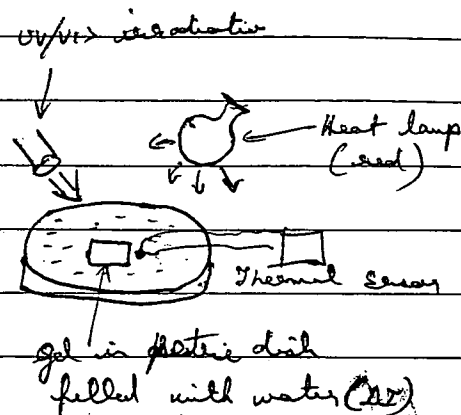 UV/VIS irradiation
Heat lamp
(red)
Thermal Sensor
gel in plastic dish
filled with water (DI)